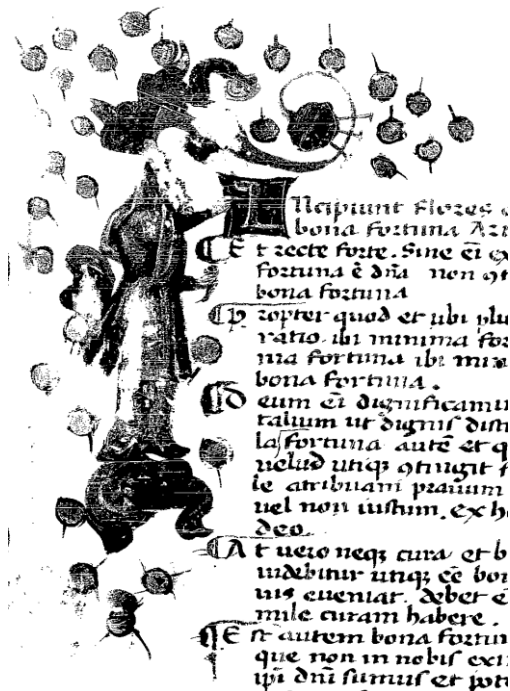 INcipiunt Flores
bona fortuna
Et recte forte. Sine eī
fortuna ē dn̄i non ꝯt
bona fortuna
Propter quod et ubi plu
ratio ibi minima for
ma fortuna ibi
bona fortuna.
Deum eī dignificamu
talium ut dignis dist
la fortuna autē et q
velud utiqꝫ ꝯtingit
le atribuam prauum
vel non iustum. ex h
deo
At uero neqꝫ cura et b
uidebitur utiqꝫ eē bo
uis eueniat. debet
mile curam habere.
Est autem bona fortun
que non in nobis
ipī dn̄i sumus et pot